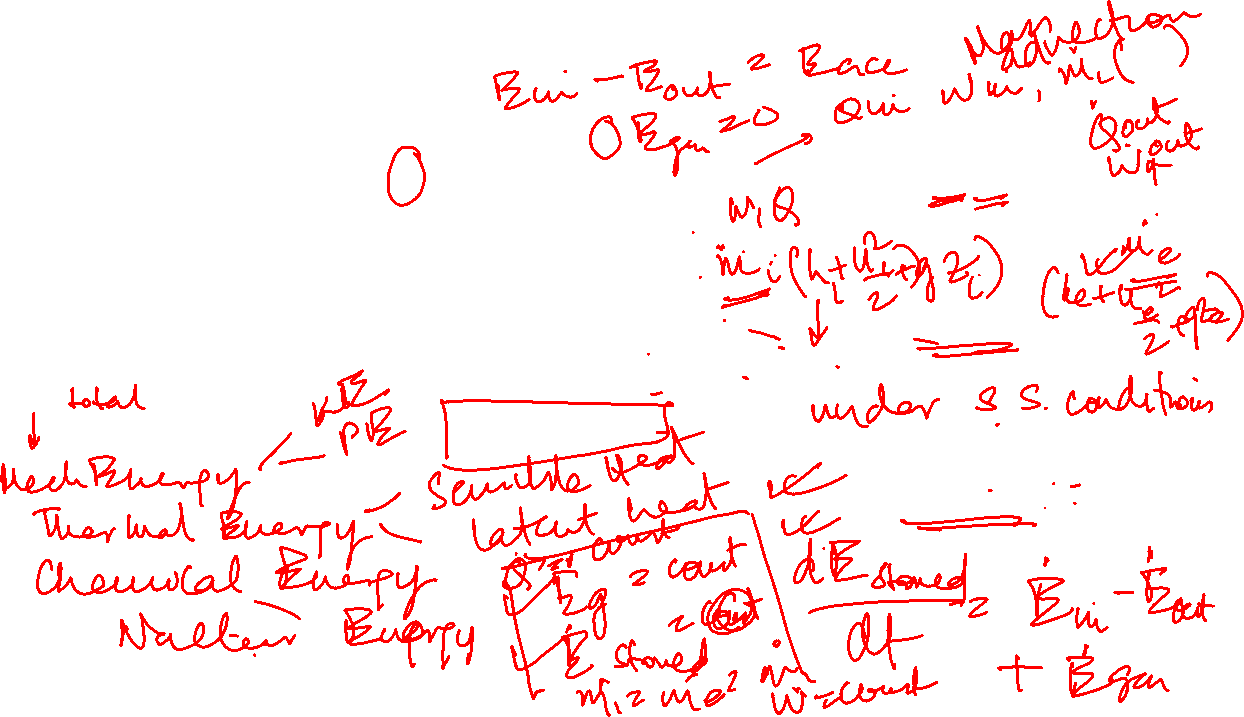 Mass advection
Ein - Eout = Eacc Qin Win, ṁi ( )
Egen = 0
Q̇out
Ẇout
W, Q
ṁi (hi + ui²/2 + gZi) ṁe (he + ue²/2 + gze)
under S.S. conditions
total
Mech Energy KE PE
Thermal Energy Sensible Heat
latent heat
Chemical Energy
Nuclear Energy
Q̇ = const
Ėg = const
Ė stored =
ṁi = ṁe = ṁ
Ẇ = const
dE stored / dt = Ėin - Ėout + Ėgen